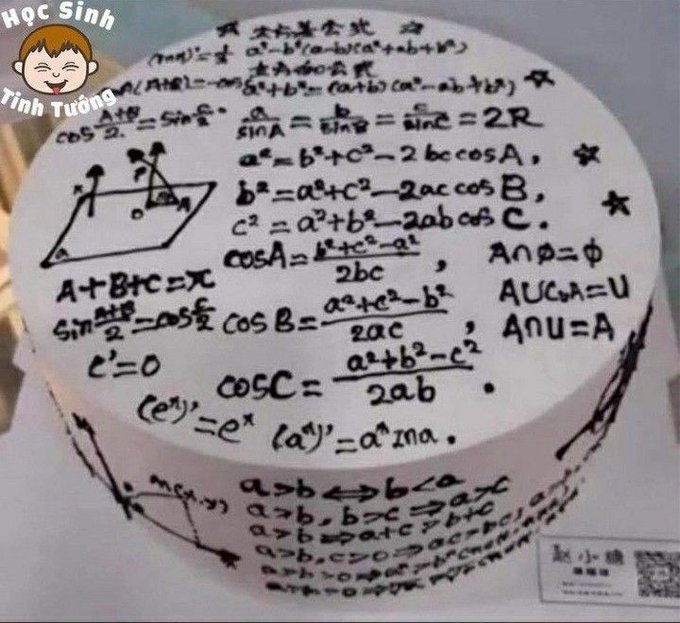 Học Sinh
Tinh Tướng
a³-b³(a-b)(a²+ab+b²)
a³+b³=(a+b)(a²-ab+b²)
cos A+B/2 = sin C/2
a/sinA = b/sinB = c/sinC = 2R
a²=b²+c²-2bccosA,
b²=a²+c²-2accosB,
c²=a²+b²-2abcosC.
P
O A
α
A+B+C=π
cosA= b²+c²-a²/2bc ,
A∩φ=φ
sin A+B/2 = cos C/2
cosB= a²+c²-b²/2ac ,
A∩U=A
C'=0
cosC= a²+b²-c²/2ab .
(eˣ)'=eˣ
(aˣ)'=aˣlna.
M(x,y)
a>b⟺b<a
a>b, b>c⟹a>c
a>b⟹a+c>b+c
a>b,c>0⟹ac>bc,
赵小糖